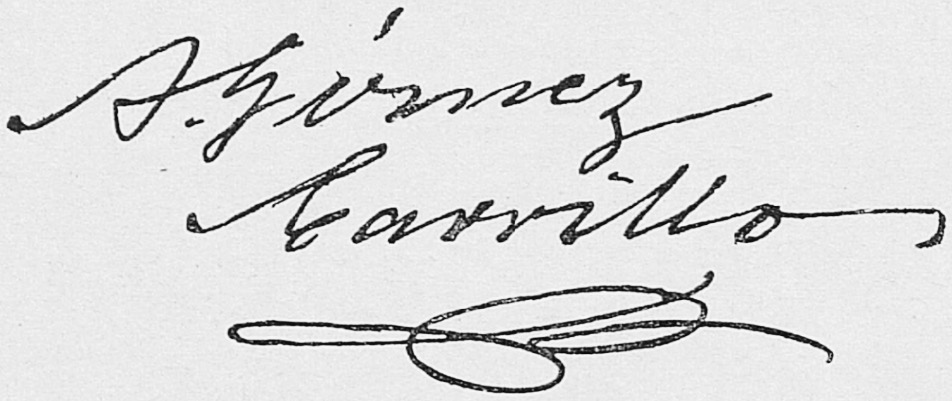 A. Gómez
Carrillo